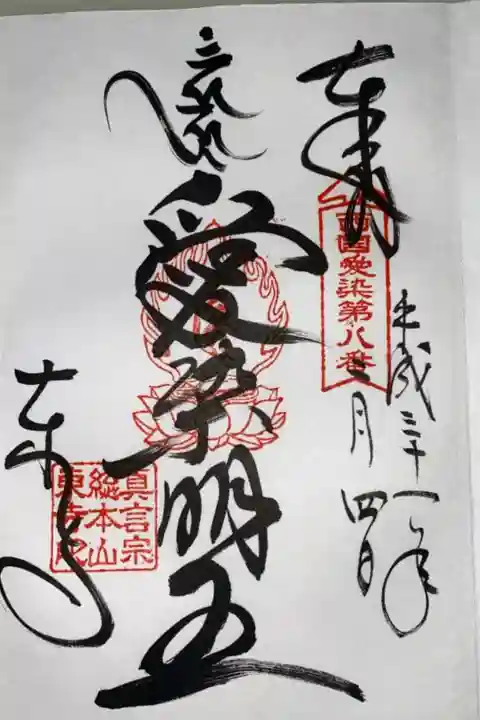 奉
西国愛染第八番
平成三十一年
二月四日
愛染明王
東寺
真言宗
総本山
東寺印